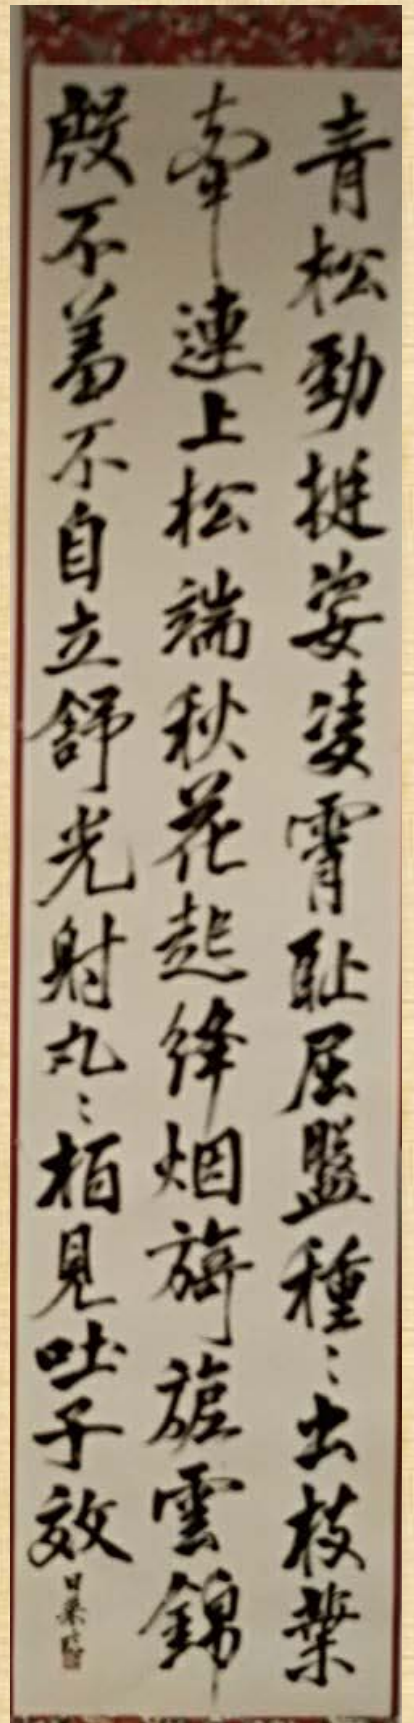 青松勁挺姿凌霄耻屈盤種〻出枝葉
牽連上松端秋花起絳烟旖旎雲錦
殷不羞不自立舒光射丸〻柏見吐子效